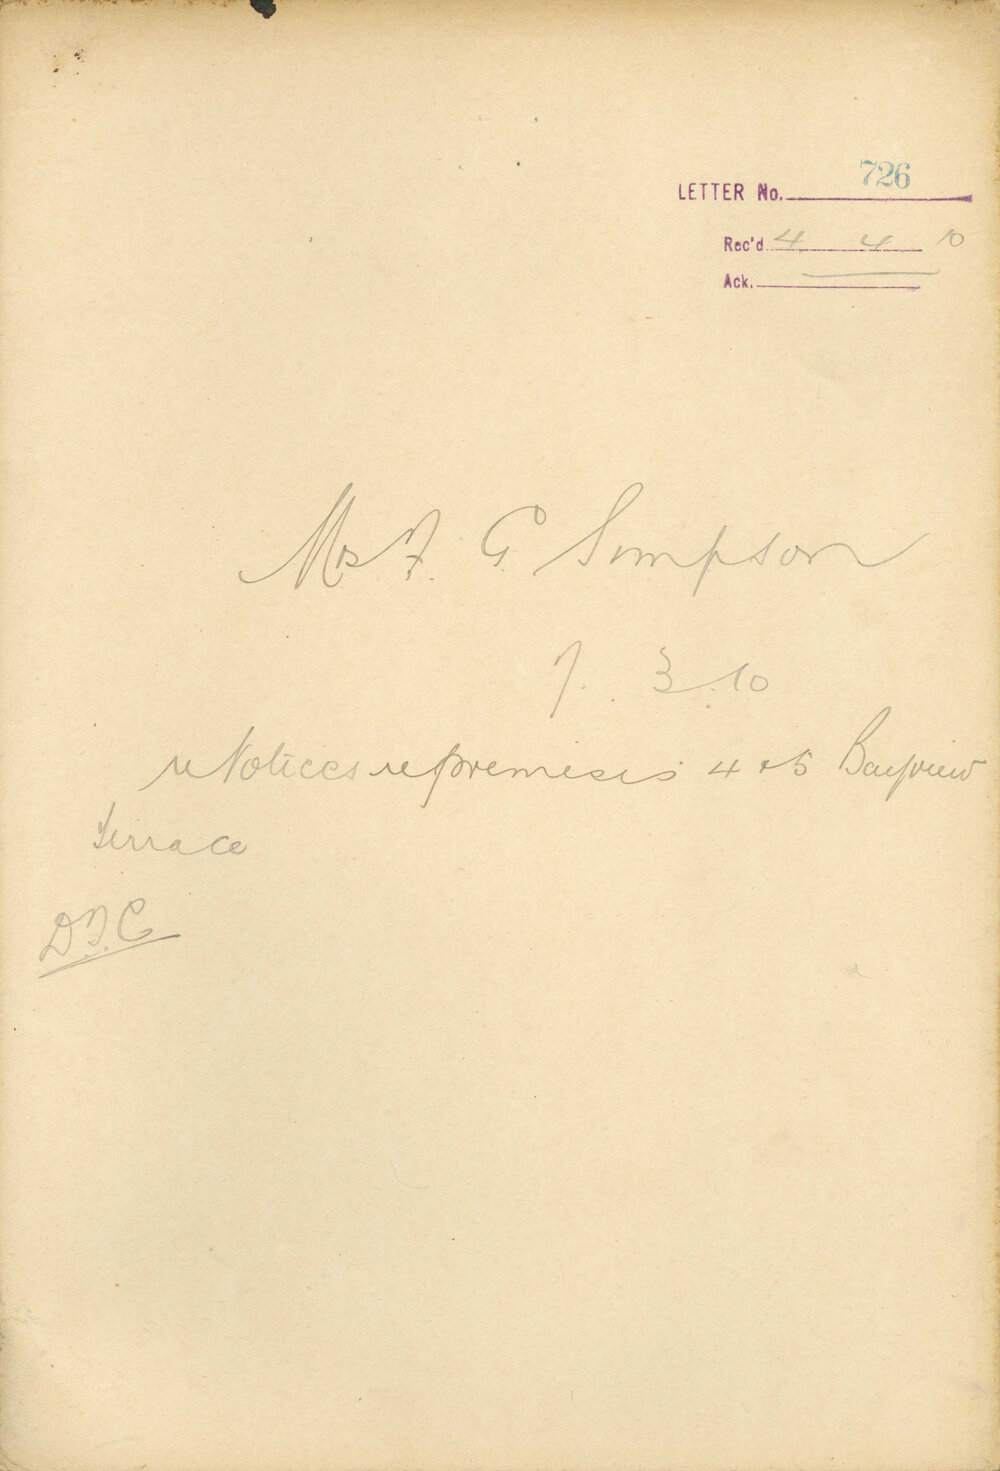 LETTER No. 726
Rec'd 4 4 10
Ack.
Mrs F. G Simpson
7. 3.10
re Notices re premises 4 & 5 Bayview
Terrace
D.F.C